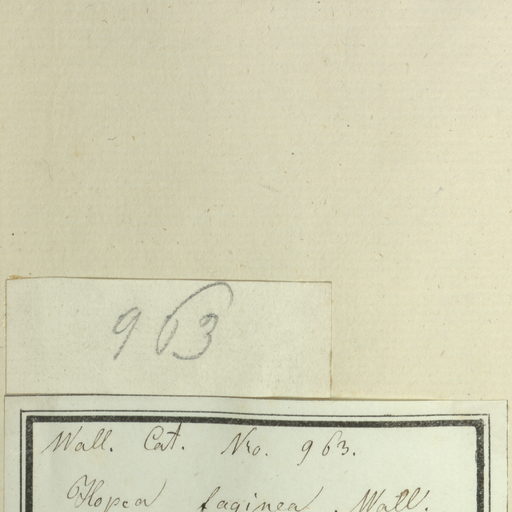 963
Wall. Cat. Nro. 963.
Hopea faginea. Wall.